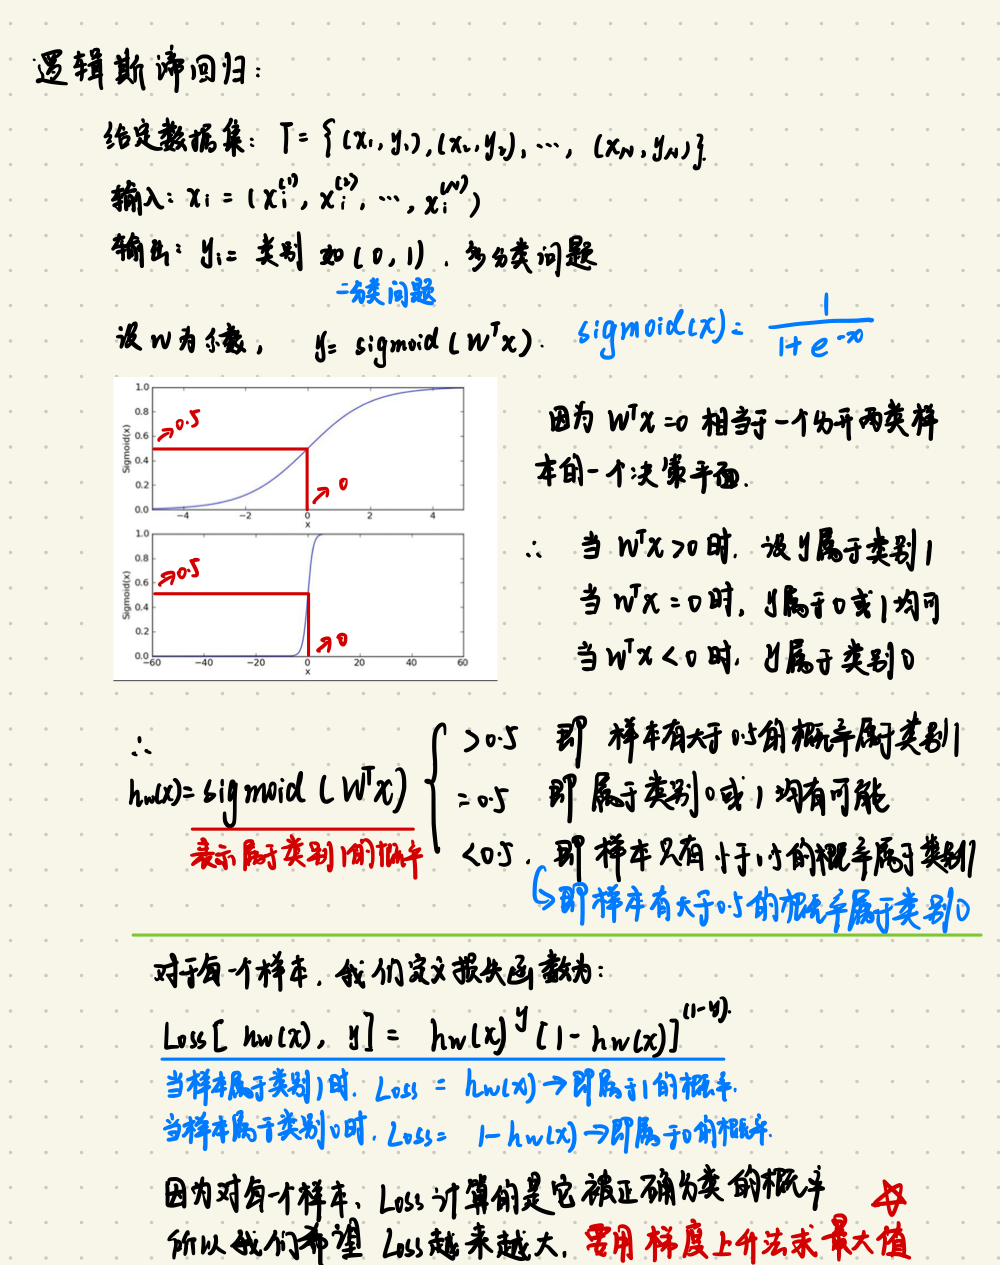 逻辑斯谛回归:
给定数据集: T = {(x₁, y₁), (x₂, y₂), ⋯, (x_N, y_N)}.
输入: xᵢ = (xᵢ⁽¹⁾, xᵢ⁽²⁾, ⋯, xᵢ⁽ᴺ⁾)
输出: yᵢ = 类别 如(0, 1). 多分类问题
二分类问题
设 W 为系数, y = sigmoid(WᵀX). sigmoid(x) = 1 / (1 + e^{-x})
1.0
0.8
0.6
0.4
0.2
0.0
Sigmoid(x)
→0.5
→0
−4 −2 0 2 4
x
1.0
0.8
0.6
0.4
0.2
0.0
Sigmoid(x)
→0.5
→0
−60 −40 −20 0 20 40 60
x
因为 Wᵀx = 0 相当于一个分开两类样
本的一个决策平面.
∴ 当 Wᵀx > 0 时. 设 y 属于类别 1
当 Wᵀx = 0 时, y属于 0 或 1 均可
当 Wᵀx < 0 时. y属于类别 0
∴
h_w(x) = sigmoid(Wᵀx)
表示属于类别1的概率
> 0.5 即 样本有大于 0.5 的概率属于类别 1
= 0.5 即 属于类别 0 或 1 均有可能
< 0.5. 即 样本只有小于0.5的概率属于类别1
↳即样本有大于0.5的概率属于类别0
对于每一个样本. 我们定义损失函数为:
Loss[h_w(x), y] = h_w(x)^y [1 - h_w(x)]^{(1-y)}.
当样本属于类别1时. Loss = h_w(x) → 即属于1的概率.
当样本属于类别0时. Loss = 1 - h_w(x) → 即属于0的概率.
因为对每一个样本, Loss 计算的是它被正确分类的概率
所以我们希望 Loss 越来越大. 需用梯度上升法求最大值